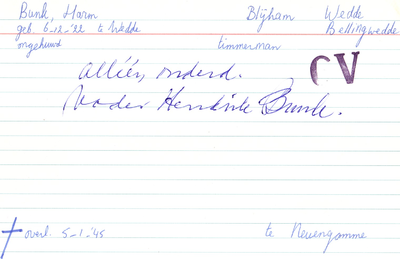 Bunk, Harm Blijham Wedde
geb. 6-12-'22 te Wedde Bellingwedde
ongehuwd timmerman
CV
alléén, onderd.
Vader Hendrik Bunk.
† overl. 5-1-'45 te Neuengamme